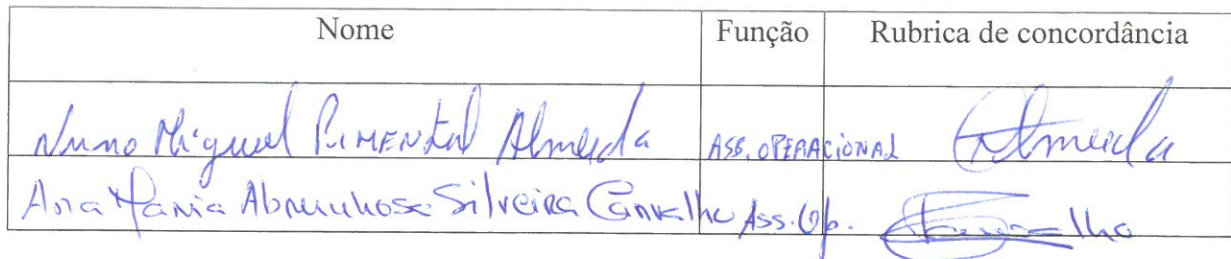 Nome Função Rubrica de concordância
Nuno Miguel Pimental Almeida ASS. OPERACIONAL Almeida
Ana Maria Abrunhosa Silveira Carvalho Ass. Op. Carvalho